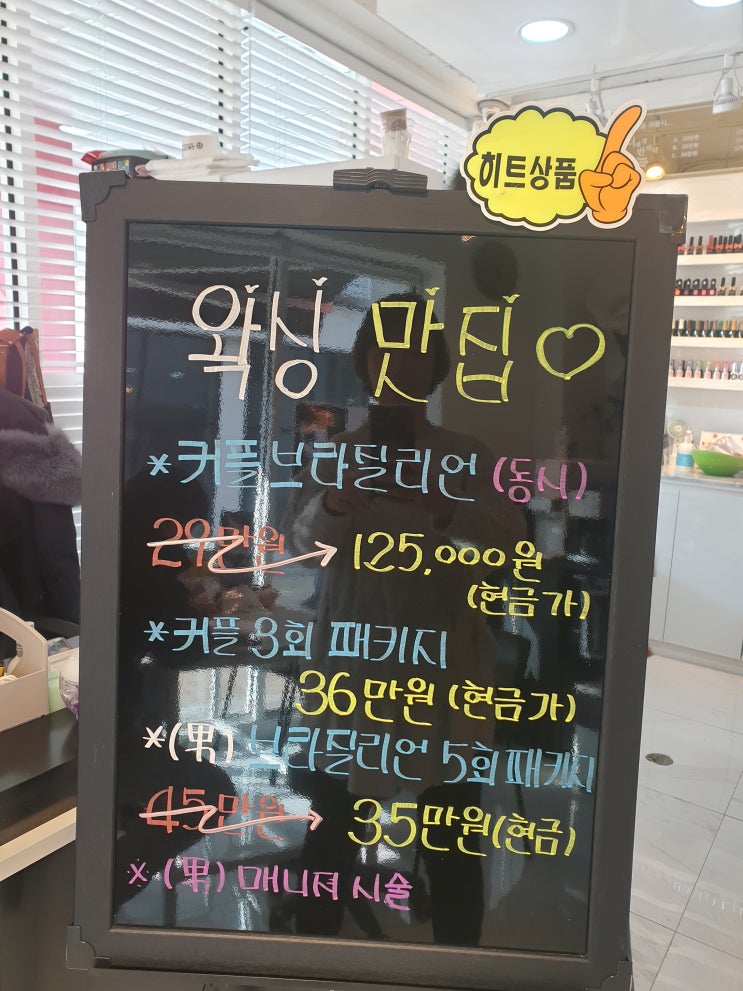 히트상품
왁싱 맛집♡
*커플브라질리언 (동시)
29만원 → 125,000원
(현금가)
*커플 3회 패키지
36만원 (현금가)
*(男) 브라질리언 5회 패키지
45만원 → 35만원(현금)
※ (男) 매니저 시술